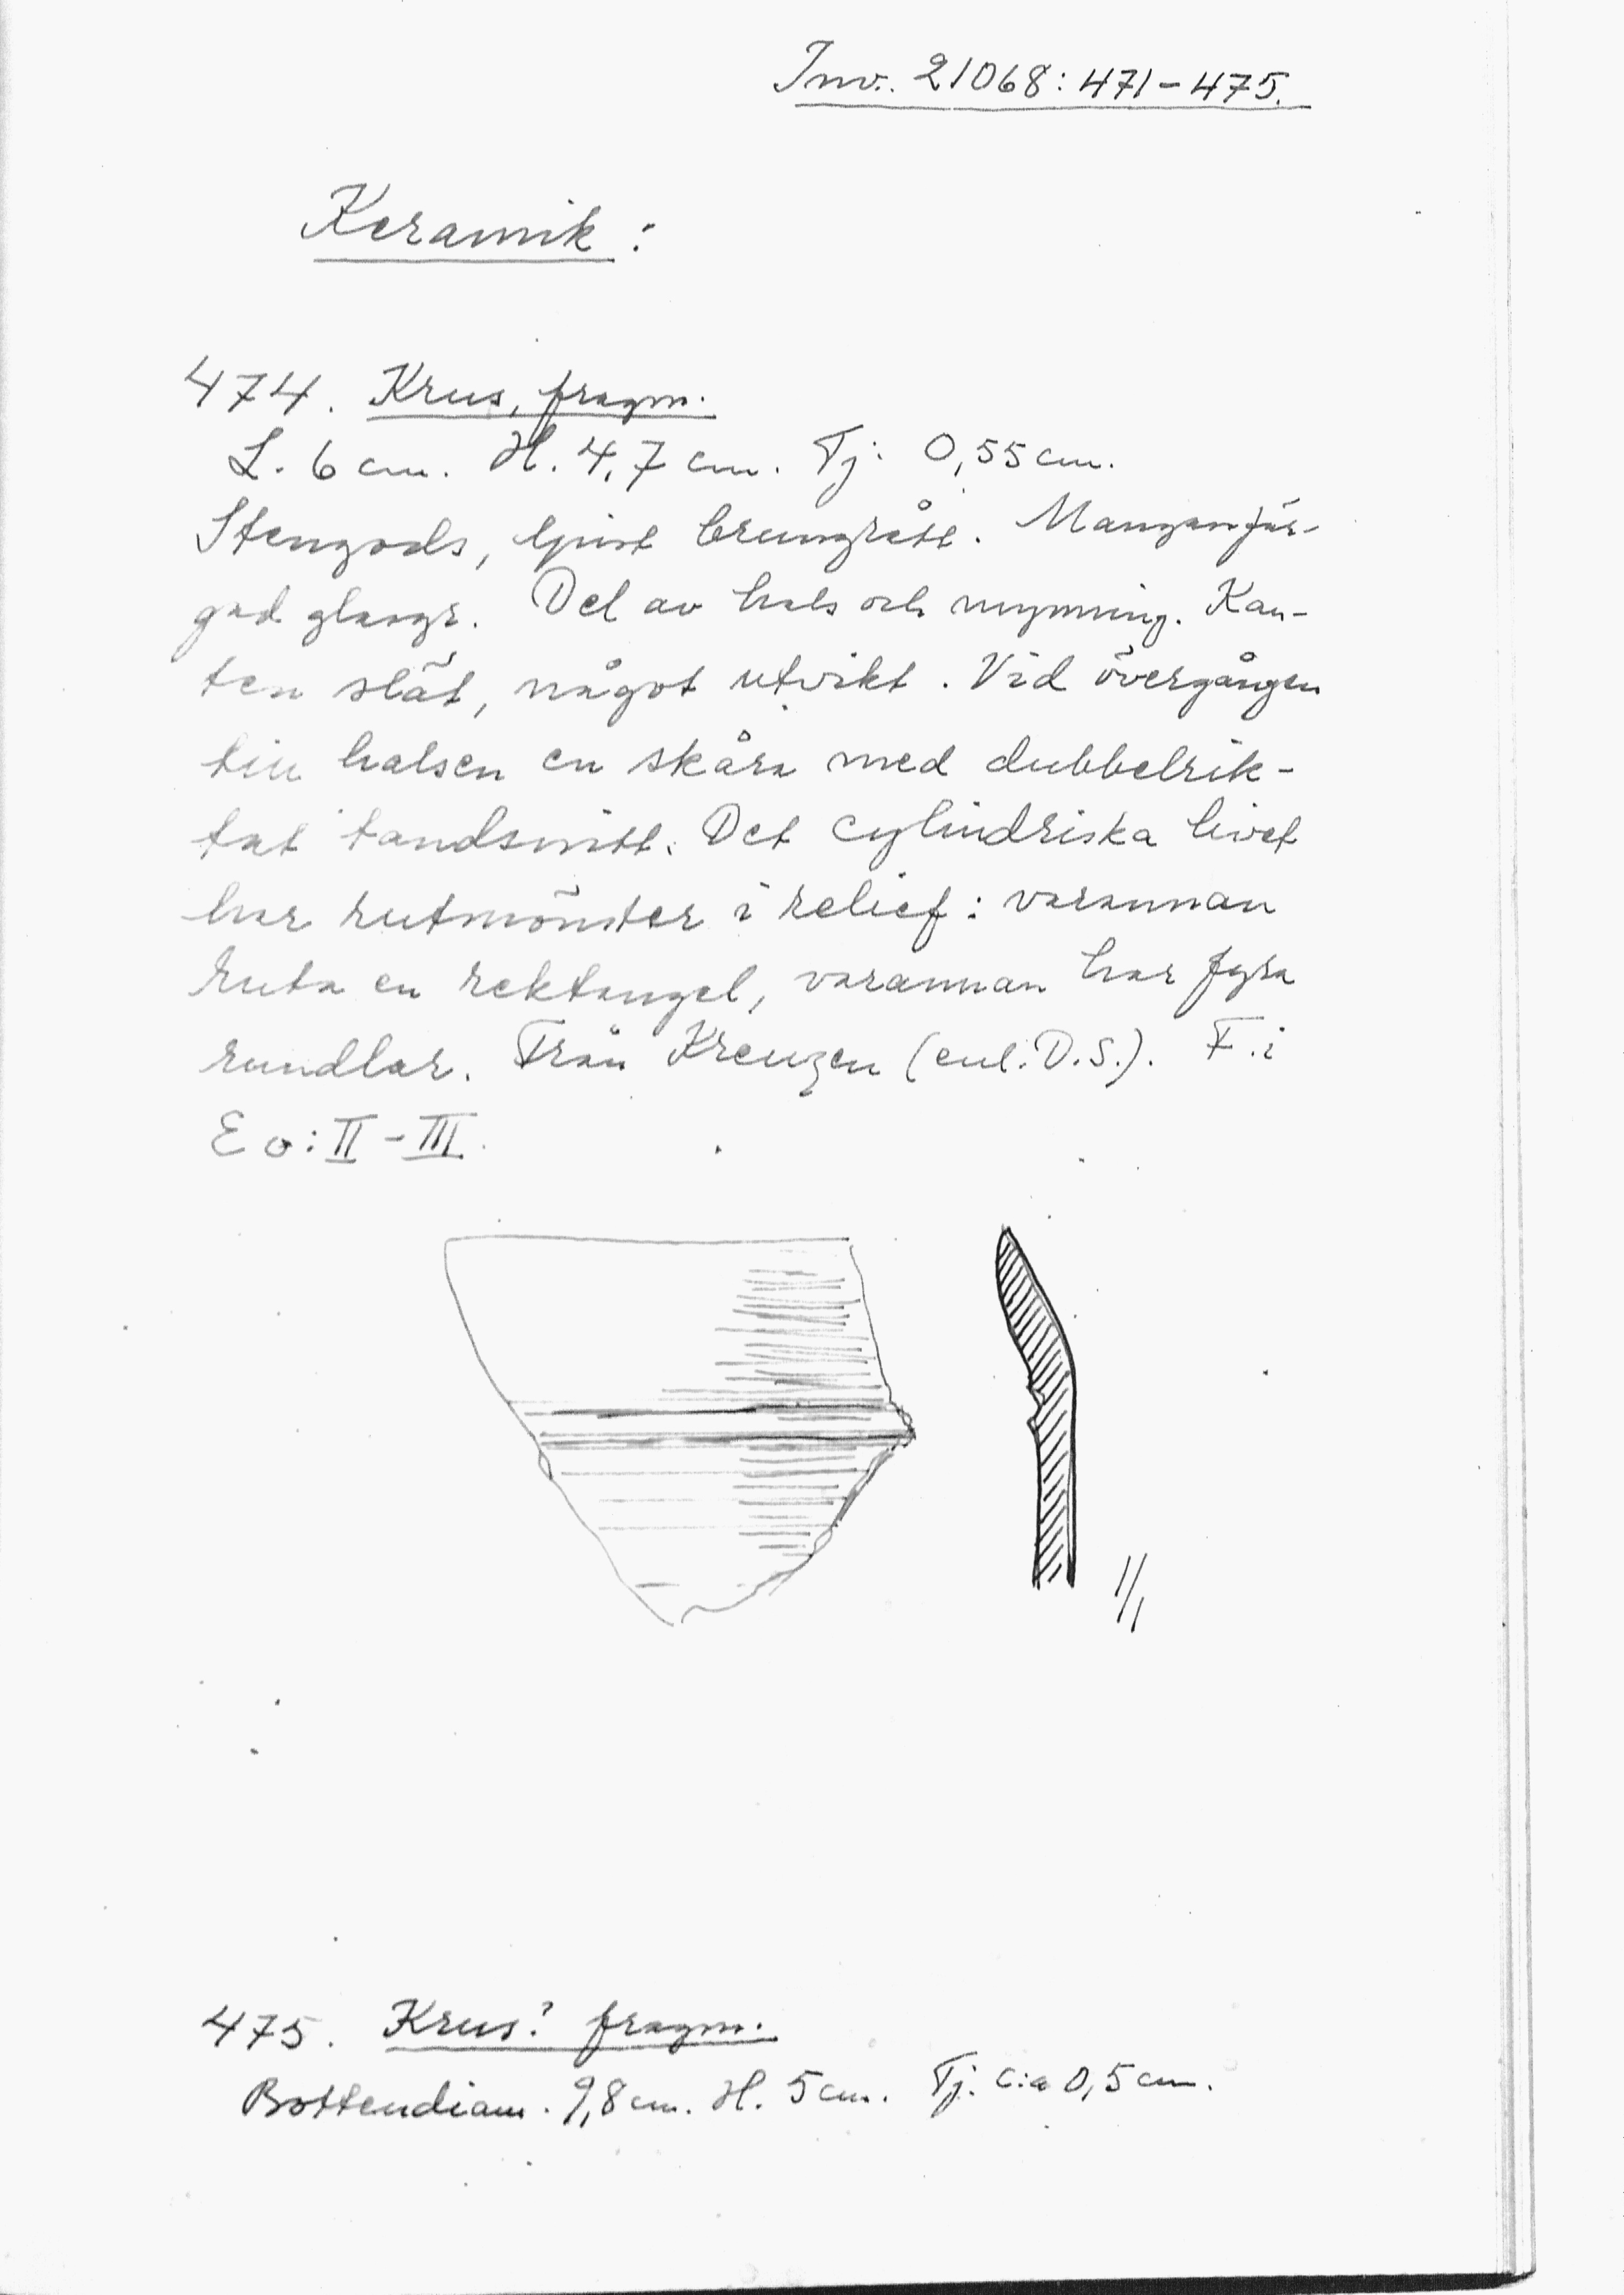 Inv. 21068: 471-475.
Keramik:
474. Krus, fragm.
L. 6 cm. H. 4,7 cm. Tj: 0,55 cm.
Stengods, ljust brungrått. Manganfär-
gad glasyr. Del av hals och mynning. Kan-
ten slät, något utvikt. Vid övergången
till halsen en skåra med dubbelrik-
tat tandsnitt. Det cylindriska livet
har rutmönster i relief: varannan
ruta en rektangel, varannan har fyra
rundlar. Från Kreuzen (enl. D.S.). F. i
E o: II - III.
1/1
475. Krus? fragm.
Bottendiam. 9,8 cm. H. 5 cm. Tj. c:a 0,5 cm.